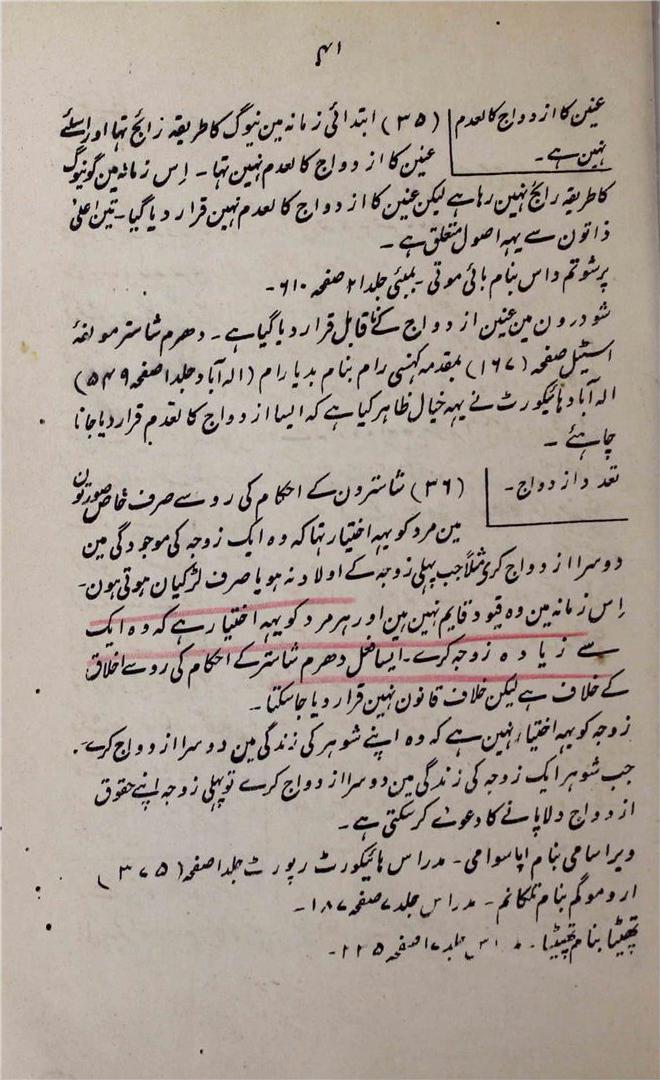 ۴۱
عنین کا ازدواج کالعدم
نہین ہے۔
(۳۵) ابتدائی زمانہ مین نیوگ کا طریقہ رائج تہا اور اسلئے
عنین کا ازدواج کالعدم نہین تہا۔ اِس زمانہ مین گو نیوگ
کا طریقہ رائج نہین رہا ہے لیکن عنین کا ازدواج کالعدم نہین قرار دیا گیا۔ تین اعلیٰ
ذاتون سے یہہ اصول متعلق ہے۔
پرشوتم داس بنام بائی موتی۔ بمبئی جلد ۲۱ صفحہ ۶۱۰۔
شودرون مین عنین ازدواج کے ناقابل قرار دیا گیا ہے۔ دھرم شاستر مولفۂ
اسٹیل صفحہ (۱۶۷) بمقدمہ کنہسی رام بنام بدیا رام (الہ آباد جلد ۱ صفحہ ۵۴۹)
الہ آباد ہائیکورٹ نے یہہ خیال ظاہر کیا ہے کہ ایسا ازدواج کالعدم قرار دیا جانا
چاہئے۔
تعدد ازدواج۔
(۳۶) شاسترون کے احکام کی رو سے صرف خاص صورتون
مین مرد کو یہہ اختیار تہا کہ وہ ایک زوجہ کی موجودگی مین
دوسرا ازدواج کری مثلاً جب پہلی زوجہ کے اولاد نہ ہو یا صرف لڑکیان ہوتی ہون۔
اِس زمانہ مین وہ قیود قایم نہین ہین اور ہر مرد کو یہہ اختیار ہے کہ وہ ایک
سے زیادہ زوجہ کرے۔ ایسا فعل دھرم شاستر کے احکام کی رو سے اخلاق
کے خلاف ہے لیکن خلاف قانون نہین قرار دیا جاسکتا۔
زوجہ کو یہہ اختیار نہین ہے کہ وہ اپنے شوہر کی زندگی مین دوسرا ازدواج کرے۔
جب شوہر ایک زوجہ کی زندگی مین دوسرا ازدواج کرے تو پہلی زوجہ اپنے حقوق
ازدواج دلاپانے کا دعوے کرسکتی ہے۔
ویراسامی بنام اپاسوامی۔ مدراس ہائیکورٹ رپورٹ جلد ۱ صفحہ (۳۷۵)
اروموگم بنام تلکانم۔ مدراس جلد ۷ صفحہ ۱۸۷۔
بنام جلد ۱۷ صفحہ ۲۳۵۔